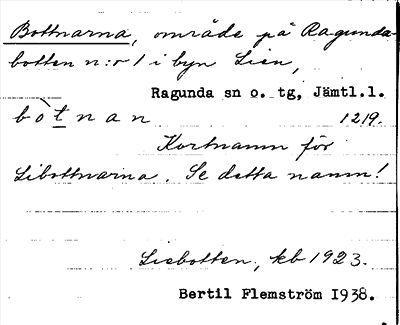 Bottnarna, område på Ragunda-
botten n:o 1 i byn Lien,
Ragunda sn o. tg, Jämtl.l.
bòtnan 1219.
Kortnamn för
Libottnarna. Se detta namn!
Liebotten, kb 1923.
Bertil Flemström 1938.